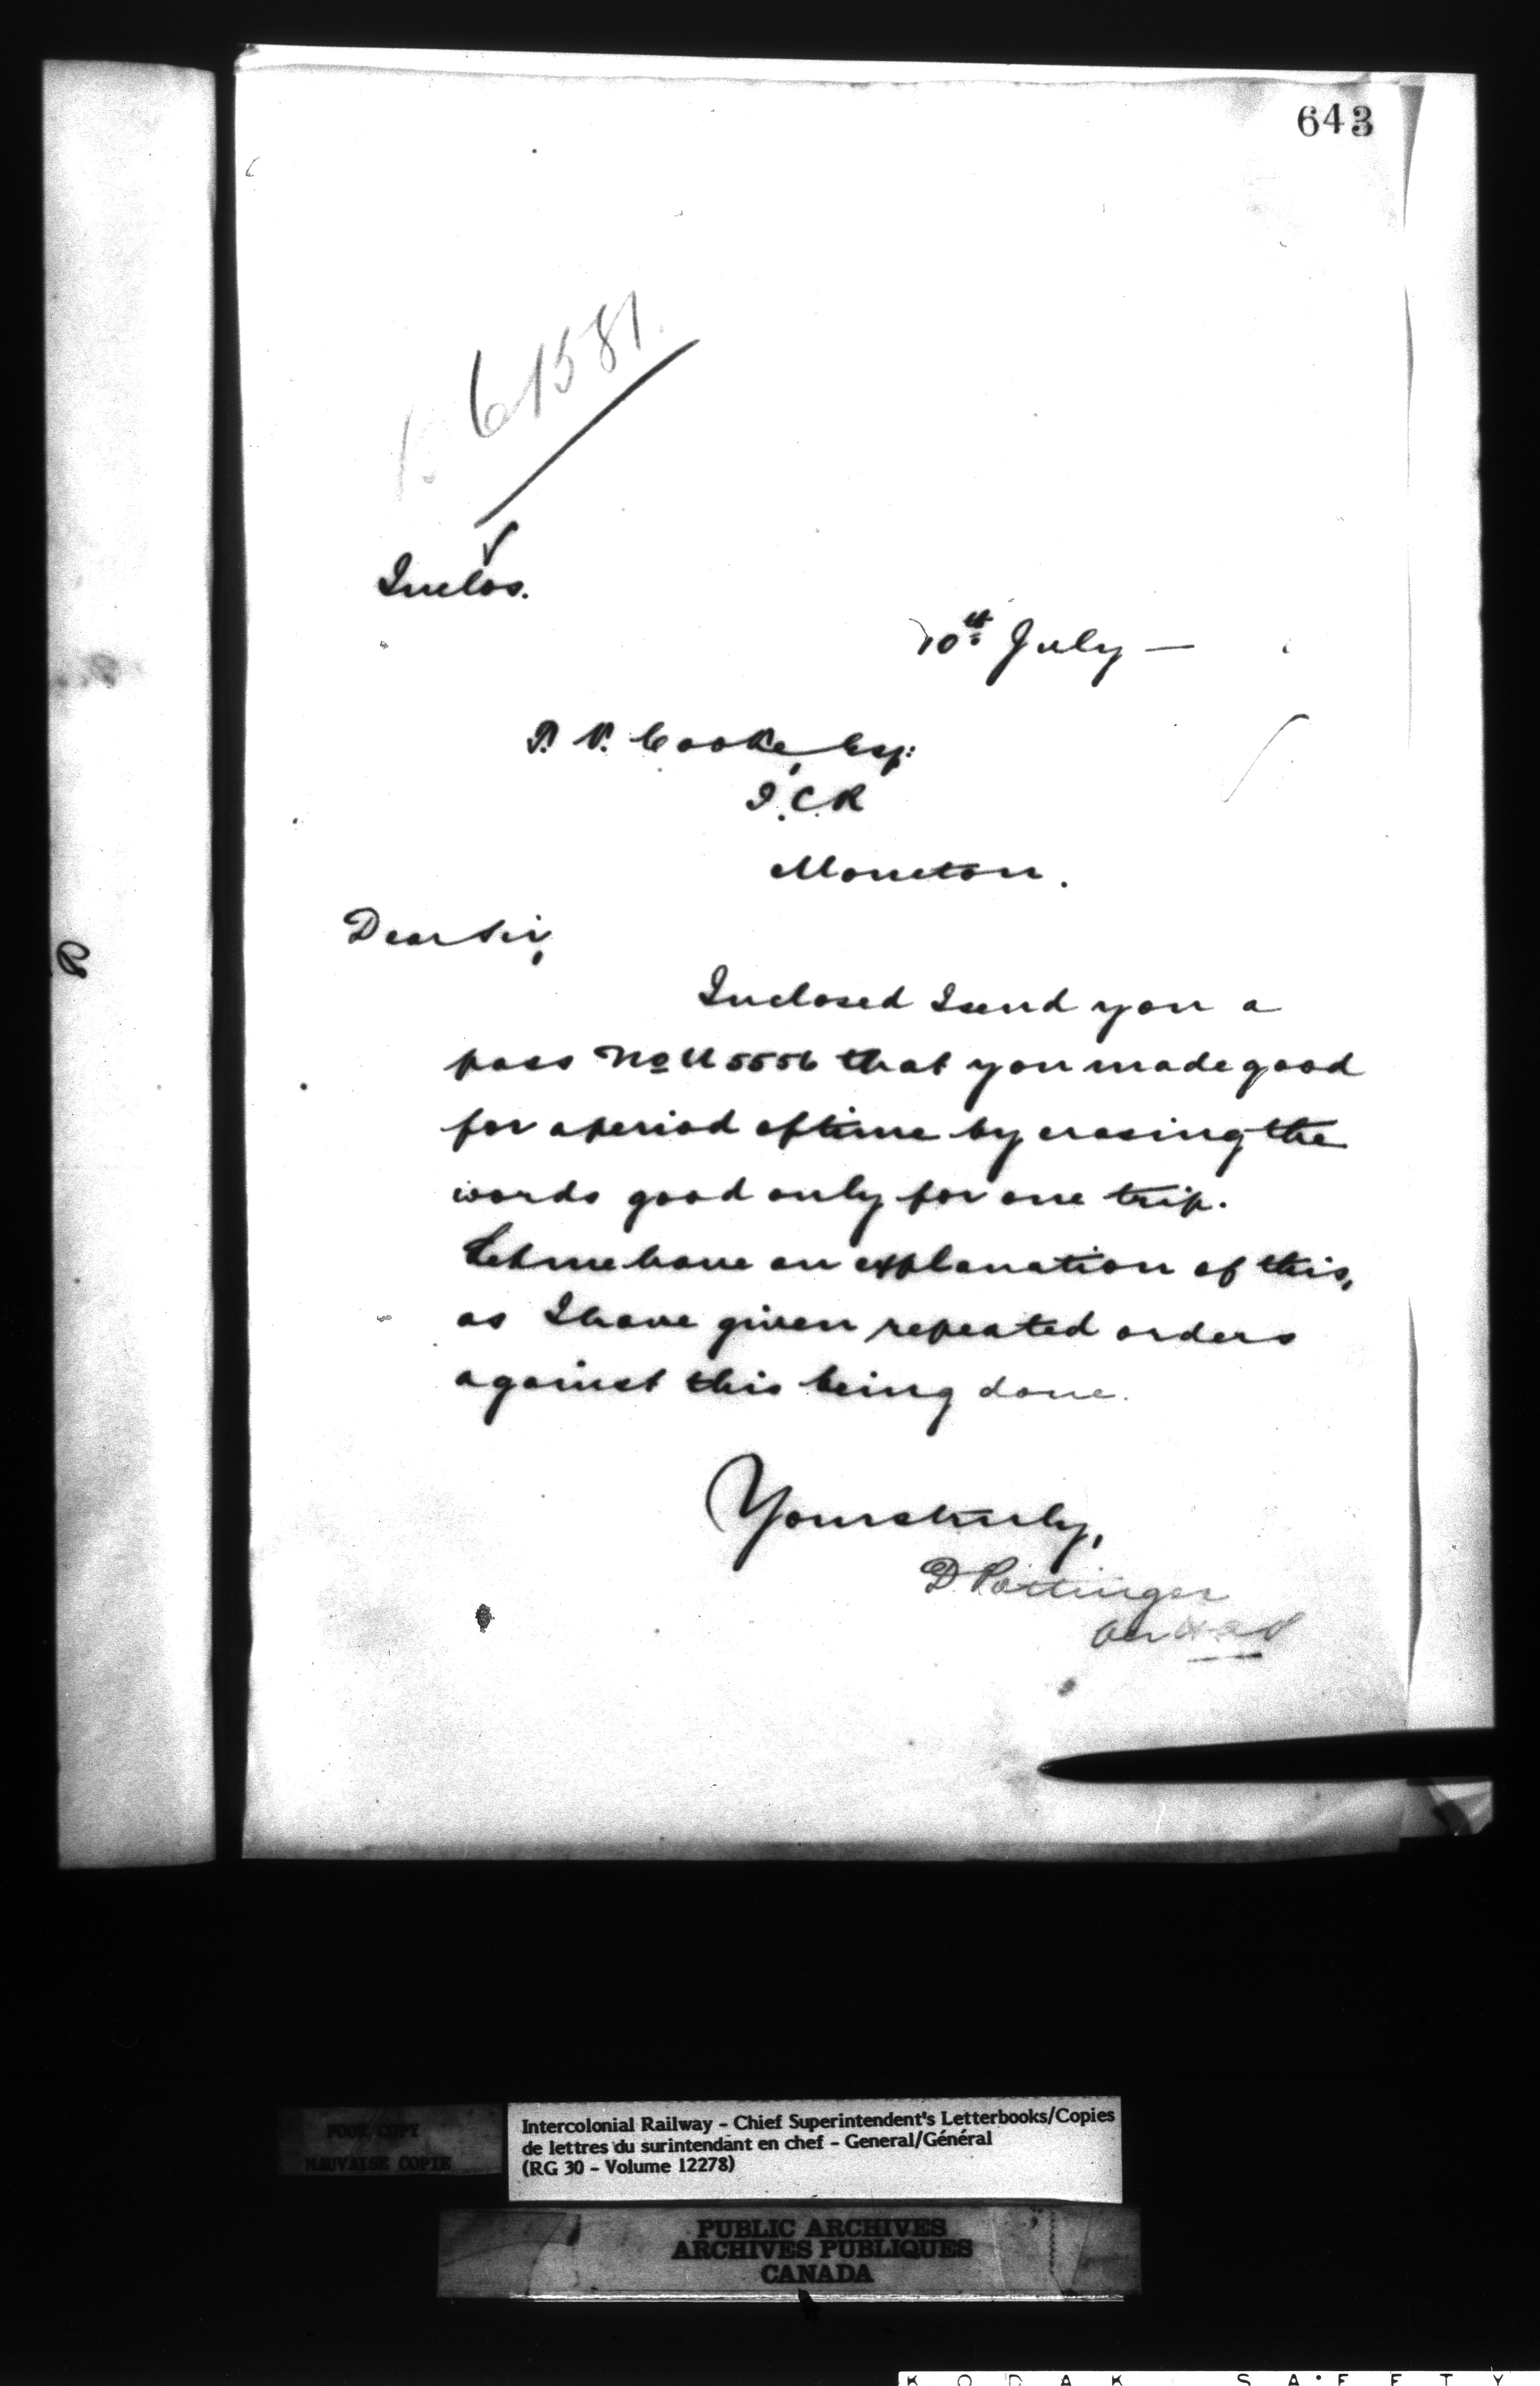 643
61581.
Inclos.
10th July —
P. V. Cooke, Esq:
I.C.R
Moncton.
Dear Sir,
Inclosed I send you a
pass No U 5556 that you made good
for a period of time by erasing the
words good only for one trip.
Let me have an explanation of this,
as I have given repeated orders
against this being done.
Yours truly,
D. Pottinger
POOR COPY
MAUVAISE COPIE
Intercolonial Railway - Chief Superintendent's Letterbooks/Copies
de lettres du surintendant en chef - General/Général
(RG 30 - Volume 12278)
PUBLIC ARCHIVES
ARCHIVES PUBLIQUES
CANADA
KODAK SAFETY